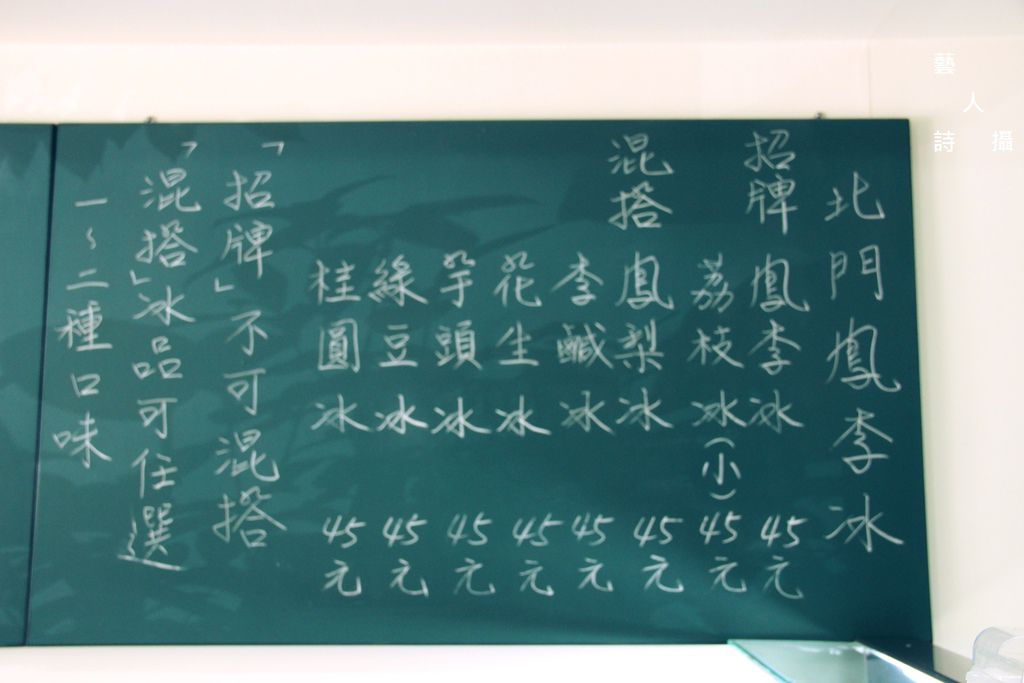 北門鳳李冰
招牌 鳳李冰 45元
荔枝冰(小) 45元
混搭 鳳梨冰 45元
李鹹冰 45元
花生冰 45元
芋頭冰 45元
綠豆冰 45元
桂圓冰 45元
「招牌」不可混搭
「混搭」冰品可任選
一~二種口味
藝人詩攝